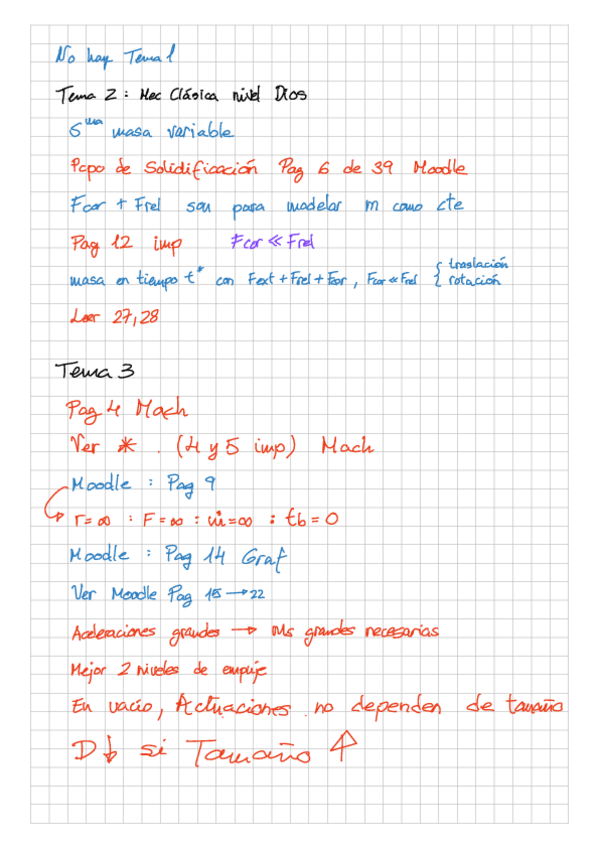 No hay Tema 1
Tema 2: Mec Clásica nivel Dios
Sma masa variable
Pcpo de Solidificación Pag 6 de 39 Moodle
Fcor + Frel son para modelar m como cte
Pag 12 imp Fcor << Frel
masa en tiempo t* con Fext + Frel + Fcor, Fcor << Frel { traslación
rotación
Leer 27, 28
Tema 3
Pag 4 Mach
Ver * . (4 y 5 imp) Mach
Moodle : Pag 9
r = ∞ : F = ∞ : ṁ = ∞ : tb = 0
Moodle : Pag 14 Graf
Ver Moodle Pag 15 → 22
Aceleraciones grandes → Ms grandes necesarias
Mejor 2 niveles de empuje
En vacío, Actuaciones no dependen de tamaño
D↓ si Tamaño ↑